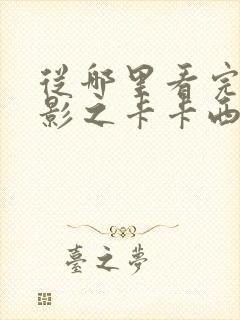 從哪里看完
影之卡卡西
臺之夢